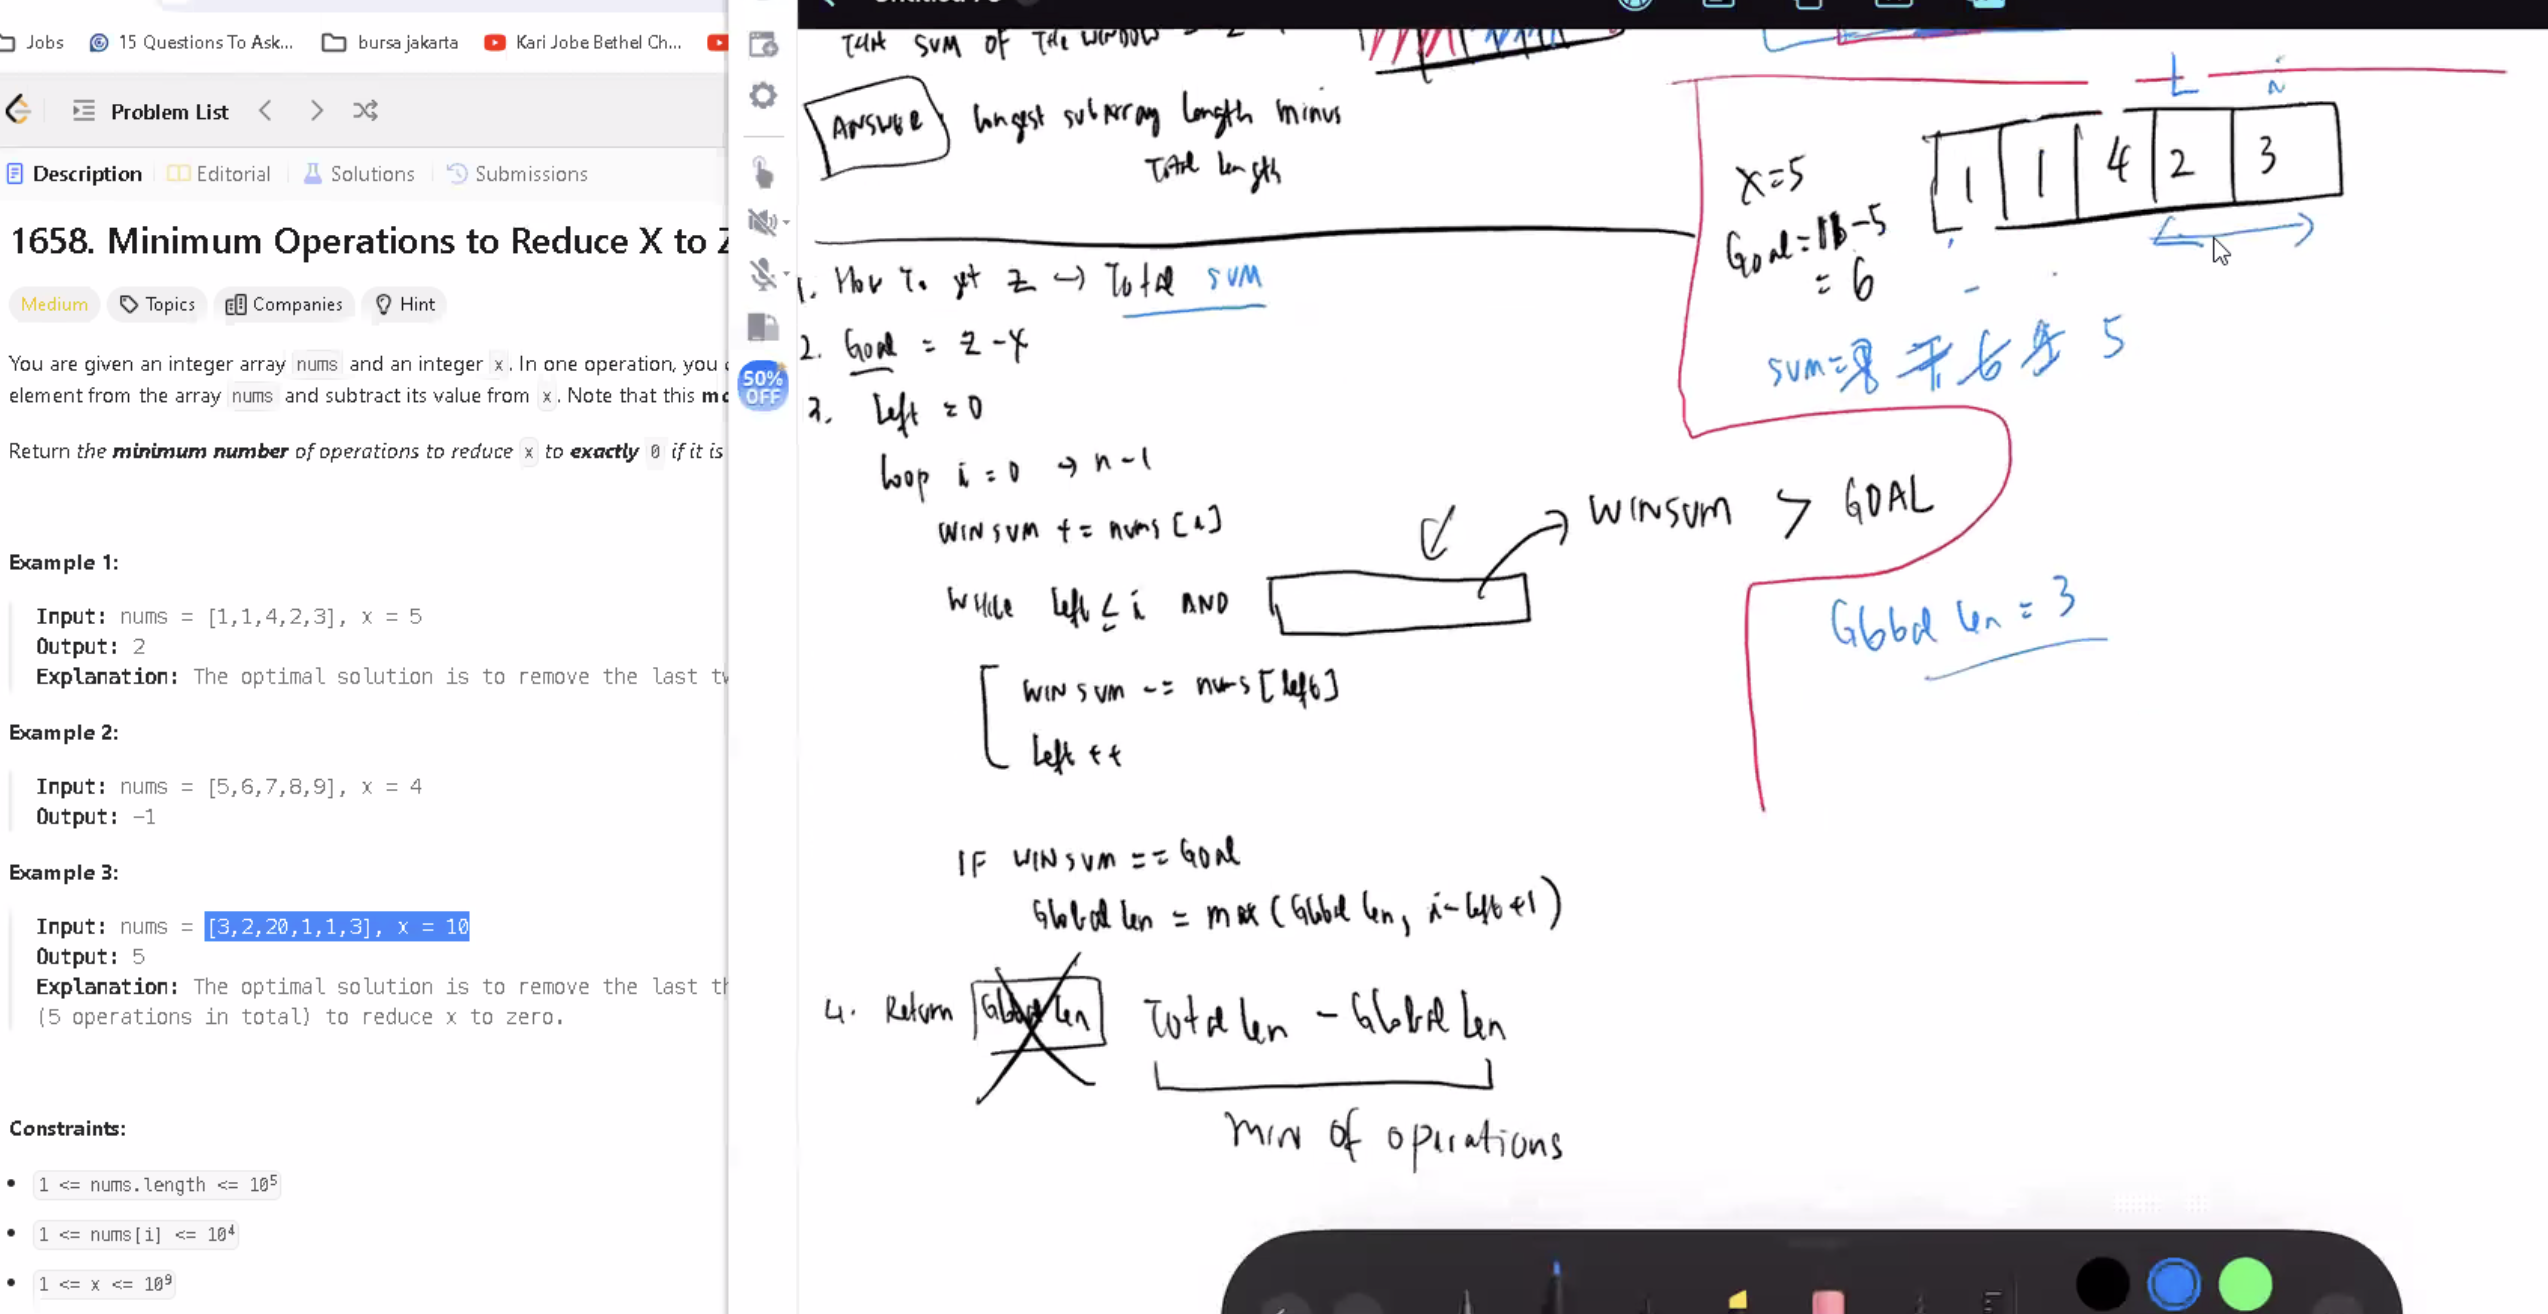 Jobs
15 Questions To Ask...
bursa jakarta
Kari Jobe Bethel Ch...
Problem List
Description
Editorial
Solutions
Submissions
1658. Minimum Operations to Reduce X to
Medium
Topics
Companies
Hint
You are given an integer array nums and an integer x. In one operation, you
element from the array nums and subtract its value from x. Note that this
Return the minimum number of operations to reduce x to exactly 0 if it is
Example 1:
Input: nums = [1,1,4,2,3], x = 5
Output: 2
Explanation: The optimal solution is to remove the last
Example 2:
Input: nums = [5,6,7,8,9], x = 4
Output: -1
Example 3:
Input: nums = [3,2,20,1,1,3], x = 10
Output: 5
Explanation: The optimal solution is to remove the last
(5 operations in total) to reduce x to zero.
Constraints:
1 <= nums.length <= 10⁵
1 <= nums[i] <= 10⁴
1 <= x <= 10⁹
50%
OFF
SUM OF THE WINDOW
ANSWER
longest subarray length minus
Total length
1. How To get Z → Total SUM
2. Goal = Z - X
3. left = 0
loop i = 0 → n - 1
WINSUM += nums[i]
WHILE left ≤ i AND
WINSUM > GOAL
WINSUM -= nums[left]
left ++
IF WINSUM == GOAL
Global len = max (Global len, i - left + 1)
4. Return Global len Total len - Global len
MIN OF operations
L i
X = 5
1 1 4 2 3
Goal = 11 - 5
= 6
SUM = 8 7 6 5
Global len = 3